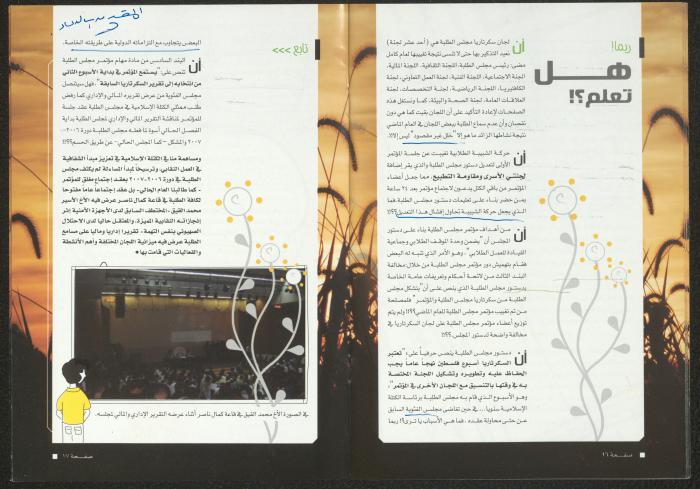 ربما!
هل
تعلم؟!
أن لجان سكرتاريا مجلس الطلبة هي ( أحد عشر لجنة )
نعيد التذكير بها حتى لا ننسى نتيجة تغييبها لعام كامل
مضى: رئيس مجلس الطلبة، اللجنة الثقافية، اللجنة المالية،
اللجنة الاجتماعية، اللجنة الفنية، لجنة العمل التعاوني، لجنة
الكافتيريا، اللجنة الرياضية، لجنة التخصصات، لجنة
العلاقات العامة، لجنة الصحة والبيئة، كما ونستغل هذه
الصفحات لإعادة التأكيد على أن اللجان بقيت كما هي دون
نقصان وأن عدم سماع الطلبة ببعض اللجان في العام الماضي
نتيجة نشاطها الزائد ما هو إلا "خلل غير مقصود" ليس إلا!!.
أن حركة الشبيبة الطلابية تغيبت عن جلسة المؤتمر
الأولى لتعديل دستور مجلس الطلبة والذي يقر إضافة
لجنتي الأسرى ومقاومة التطبيع، مما جعل أعضاء
المؤتمر من باقي الكتل يدعون لاجتماع مؤتمر بعد ٢٤ ساعة
بمن حضر بناء على تعليمات دستور مجلس الطلبة، فما
الذي يجعل حركة الشبيبة تحاول إفشال هذا التعديل؟؟!!
أن من أهداف مؤتمر مجلس الطلبة بناء على دستور
المجلس أن "يضمن وحدة الموقف الطلابي وجماعية
القيادة للعمل الطلابي"، وهو الأمر الذي تنبه له البعض
فقام بتهميش دور مؤتمر مجلس الطلبة من خلال مخالفة
البند الثالث من لائحة أحكام وتعريفات عامة الخاصة
بدستور مجلس الطلبة الذي ينص على أن "يتشكل مجلس
الطلبة من سكرتاريا مجلس الطلبة والمؤتمر" فلمصلحة
من تم تغييب مؤتمر مجلس الطلبة للعام الماضي؟؟!! ولم يتم
توزيع أعضاء مؤتمر مجلس الطلبة على لجان السكرتاريا في
مخالفة واضحة لدستور المجلس؟؟!!.
أن دستور مجلس الطلبة ينص حرفياً على: "تعتبر
السكرتاريا أسبوع فلسطين نهجا عاما يجب
الحفاظ عليه وتطويره وتشكيل اللجنة المختصة
به في وقتها بالتنسيق مع اللجان الأخرى في المؤتمر"،
وهو الأسبوع الذي قام به مجلس الطلبة برئاسة الكتلة
الإسلامية سنويا....، في حين تغاضى مجلس الفئوية السابق
عن حتى محاولة عقده، فما هي الأسباب يا ترى؟! ربما
صفحة ١٦
تابع >>>
البعض يتجاوب مع التزاماته الدولية على طريقته الخاصة.
أن البند السادس من مادة مهام مؤتمر مجلس الطلبة
تنص على: "يستمع المؤتمر في بداية الأسبوع الثاني
من انتخابه إلى تقرير السكرتاريا السابقة"، فهل سيتنصل
مجلس الفئوية من عرض تقريره المالي والإداري كما رفض
طلب ممثلي الكتلة الإسلامية في مجلس الطلبة عقد جلسة
للمؤتمر لمناقشة التقرير المالي والإداري لمجلس الطلبة بداية
الفصل الحالي أسوة بما فعله مجلس الطلبة دورة ٢٠٠٦-
٢٠٠٧ والمشكل – كما المجلس الحالي– عن طريق الحسم؟؟!!
ومساهمة منا في الكتلة الإسلامية في تعزيز مبدأ الشفافية
في العمل النقابي، وترسيخا لمبدأ المساءلة لم يكتف مجلس
الطلبة في دورة ٢٠٠٦-٢٠٠٧ بعقد إجتماع مغلق للمؤتمر
– كما طالبنا العام الحالي– بل عقد إجتماعا عاما مفتوحا
لكافة الطلبة في قاعة كمال ناصر عرض فيه الأخ الأسير
محمد القيق، المختطف السابق لدى الأجهزة الأمنية إثر
إنجازاته النقابية المميزة، والمعتقل حاليا لدى الاحتلال
الصهيوني بنفس التهمة، تقريرا إداريا وماليا على مسامع
الطلبة عرض فيه ميزانية اللجان المختلفة وأهم الأنشطة
والفعاليات التي قامت بها
في الصورة الأخ محمد القيق في قاعة كمال ناصر أثناء عرضه التقرير الإداري والمالي لمجلسه.
صفحة ١٧